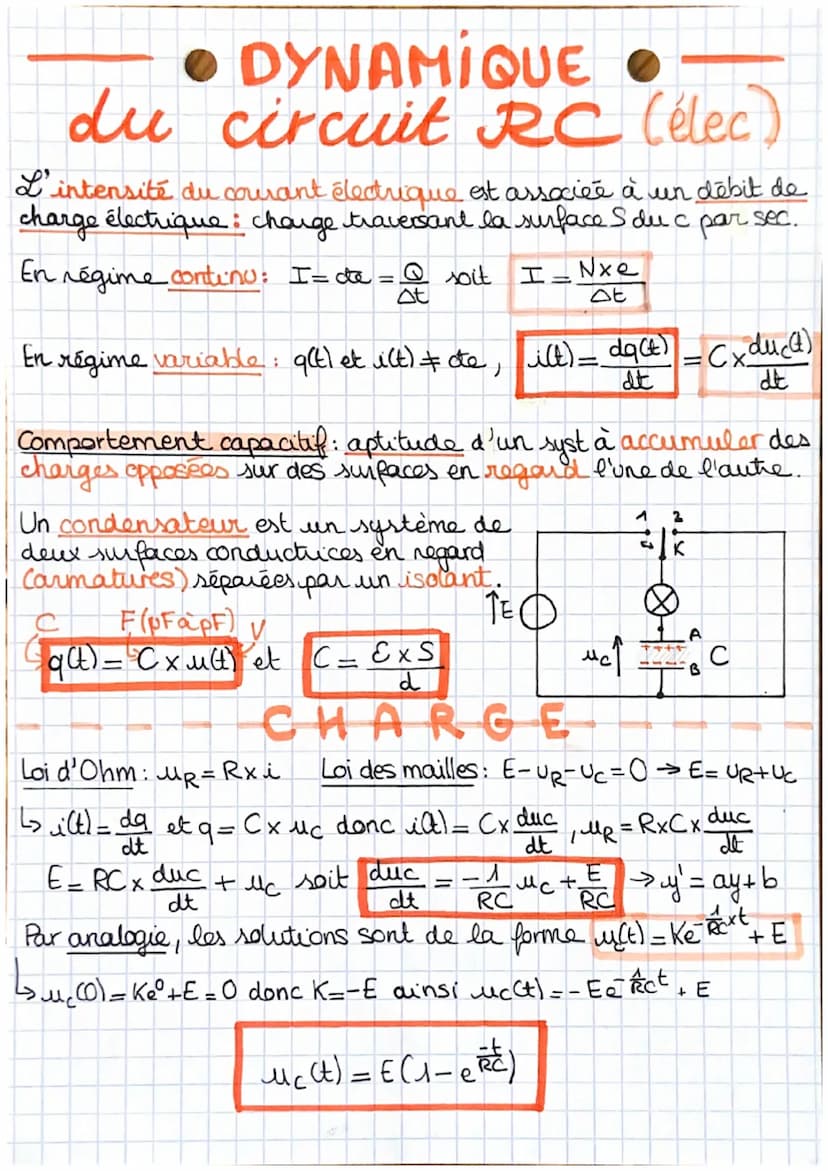 DYNAMIQUE
du circuit RC (élec)
L'intensité du courant électrique est associée à un débit de
charge électrique : charge traversant la surface S du c par sec.
En régime continu : I = cte = Q/Δt soit I = N×e/Δt
En régime variable : q(t) et i(t) ≠ cte, i(t) = dq(t)/dt = C×duc(t)/dt
Comportement capacitif : aptitude d'un syst à accumuler des
charges opposées sur des surfaces en regard l'une de l'autre.
Un condensateur est un système de
deux surfaces conductrices en regard
(armatures) séparées par un isolant.
C F(pF à µF) V
q(t) = C × u(t) et C = Ɛ × S/d
1 2
K
↑E
uc↑
A
B
C
CHARGE
Loi d'Ohm : uR = R × i Loi des mailles : E - UR - UC = 0 → E = UR + UC
↳ i(t) = dq/dt et q = C × uc donc i(t) = C × duc/dt, uR = R×C× duc/dt
E = RC × duc/dt + uc soit duc/dt = -1/RC uc + E/RC → y' = ay + b
Par analogie, les solutions sont de la forme uc(t) = Ke^(-1/RC × t) + E
↳ uc(0) = Ke⁰ + E = 0 donc K = -E ainsi uc(t) = -Ee^(-1/RC t) + E
uc(t) = E(1 - e^(-t/RC))